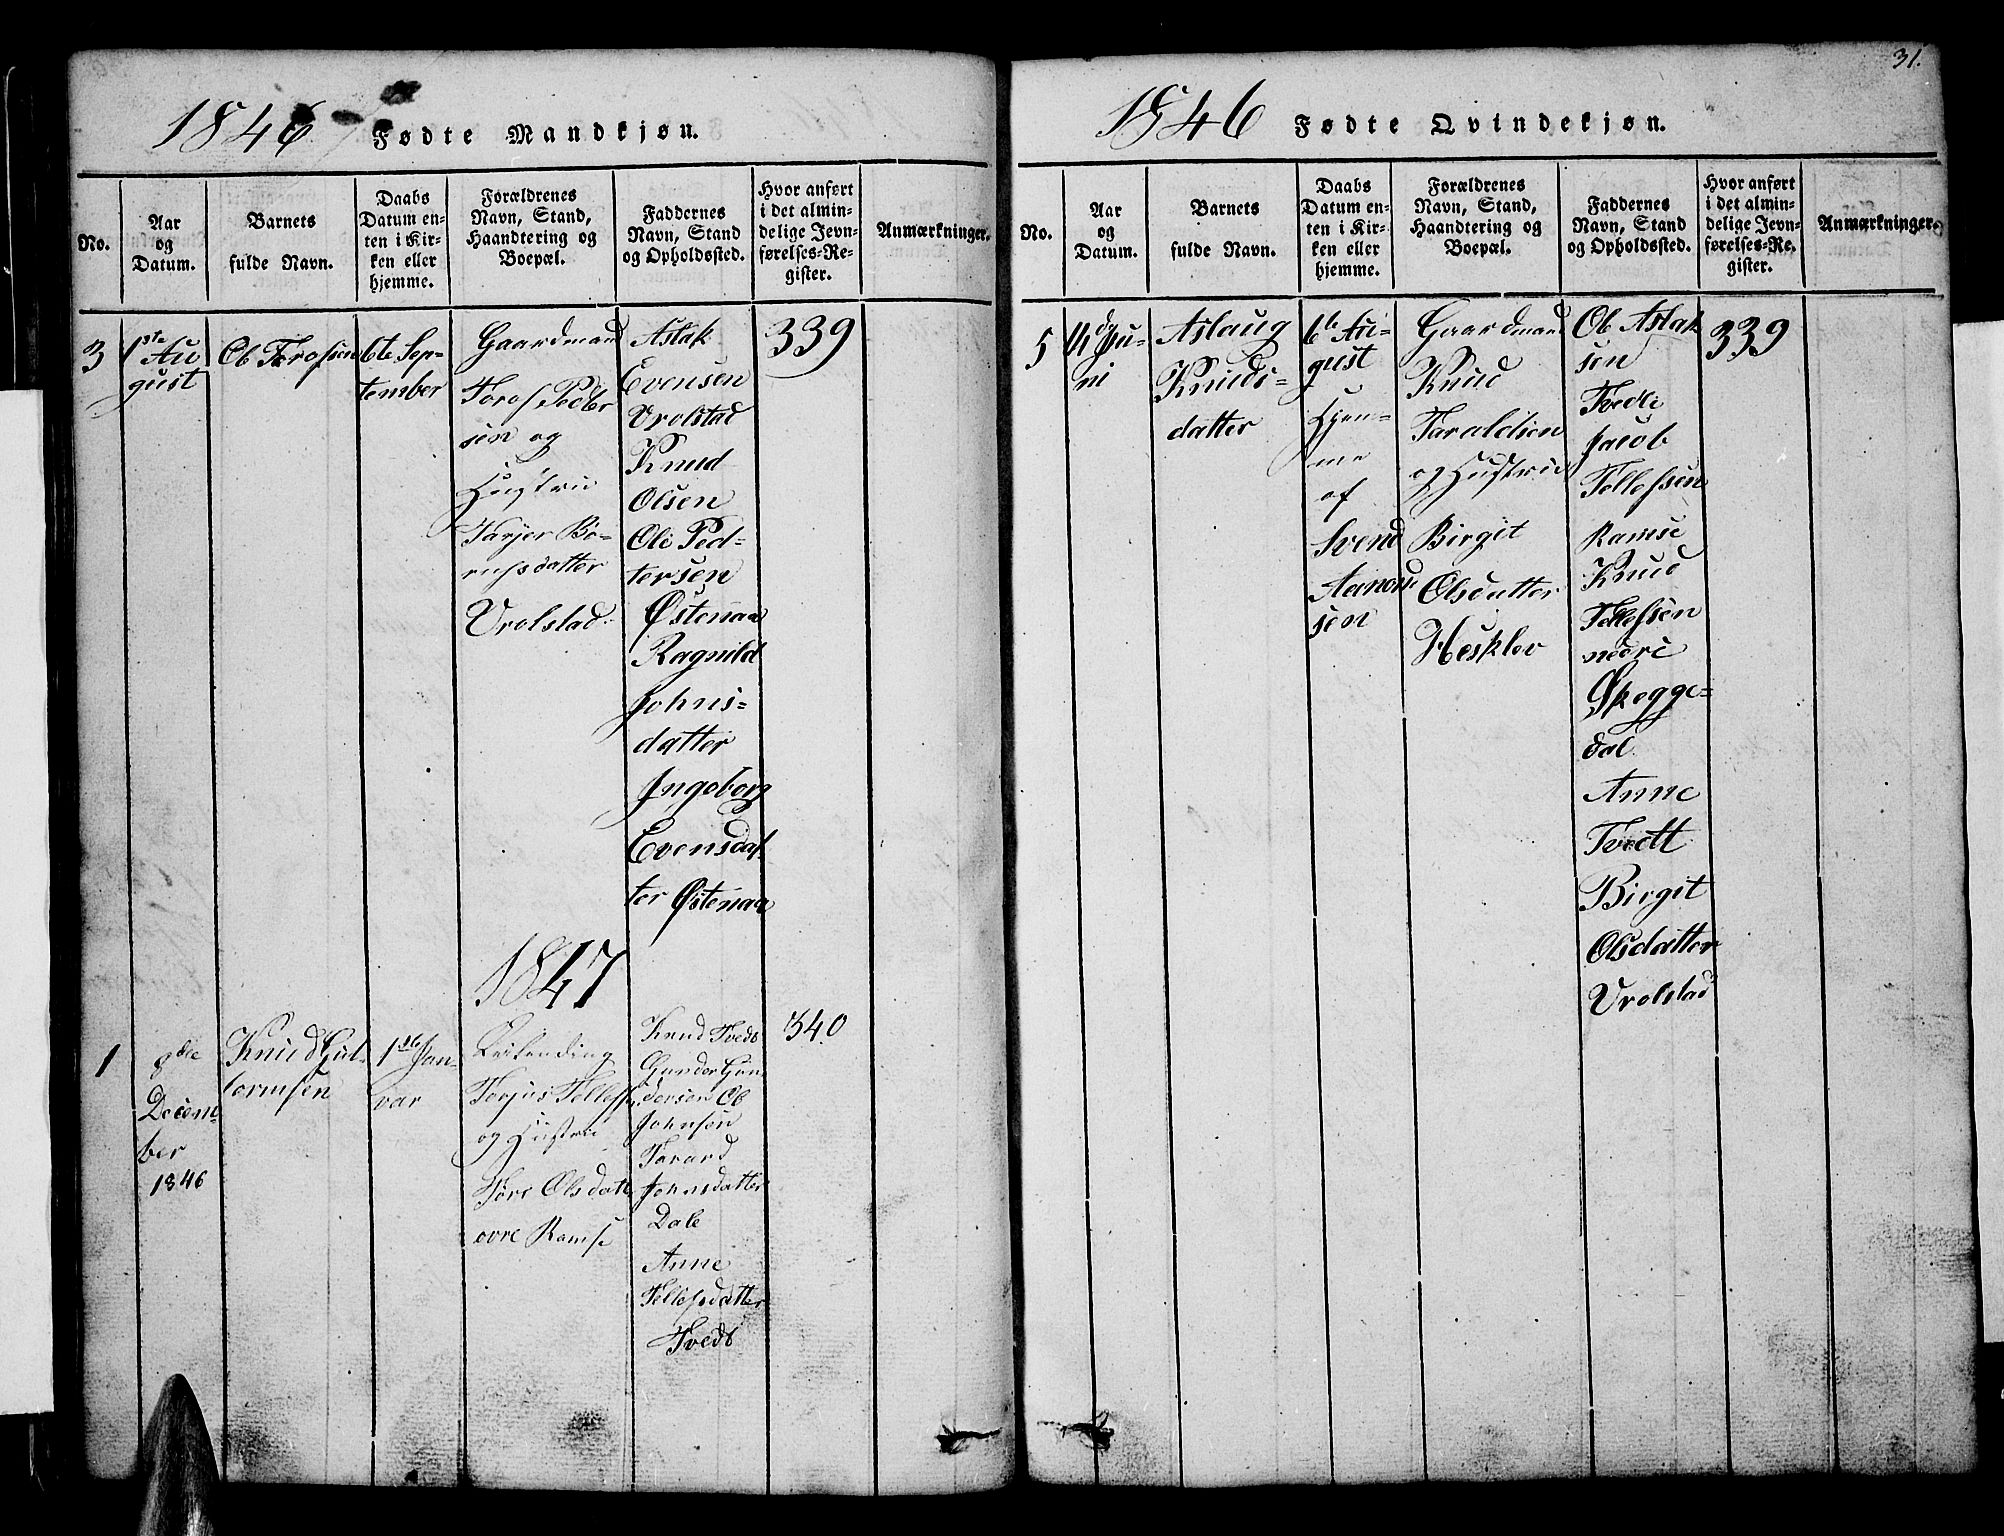 1846
Fødte Mandkjøn.
No.
Aar
og
Datum.
Barnets
fulde Navn.
Daabs
Datum en-
ten i Kir-
ken eller
hjemme.
Forældrenes
Navn, Stand,
Haandtering og
Boepæl.
Faddernes
Navn, Stand
og Opholdssted.
Hvor anført
i det almin-
delige Jevn-
førelses-Re-
gister.
Anmærkninger.
3
1ste Au
gust
Ob Torofsen
6te Sep-
tember
Gaardmand
Torof Peder
sen og
Hustrue
Tarjer Bö-
rufsdatter
Vrolstad.
Aslak
Evensen
Vrolstad
Knud
Olsen
Ole Ped-
tersen
Østenaa
Ragnild
Johns-
datter
Ingeborg
Evensdat-
ter Østenaa
339
1847
1
8de
Decem-
ber
1846
Knud Gut-
tormsen
1ste Jan-
var
Leilending
Torjus Tellefsen
og Hustrue
Tore Olsdatt
ovre Ramse
Knud Tvedt
Gunder Gun
dersen Ob
Johnsen
Torard
Johnsdatter
Dale
Anne
Tellefsdatter
Tvedt
340
31.
1846
Fødte Qvindekjøn.
No.
Aar
og
Datum.
Barnets
fulde Navn.
Daabs
Datum en-
ten i Kir-
ken eller
hjemme.
Forældrenes
Navn, Stand,
Haandtering og
Boepæl.
Faddernes
Navn, Stand
og Opholdssted.
Hvor anført
i det almin-
delige Jevn-
førelses-Re-
gister.
Anmærkninger.
5
Ju-
ni
Aslaug
Knuds-
datter
6te Au-
gust
Hjem-
me
af
Svend
sen
Gaardmand
Knud
Taraldsen
og Hustrue
Birgit
Olsdatter
Hesklev
Ob Aslak
sen
Tvedte
Jacob
Tellefsen
Ramse
Knud
Tellefsen
nedre
Skegge-
dal
Anne
Tvedt
Birgit
Olsdatter
Vrolstad
339